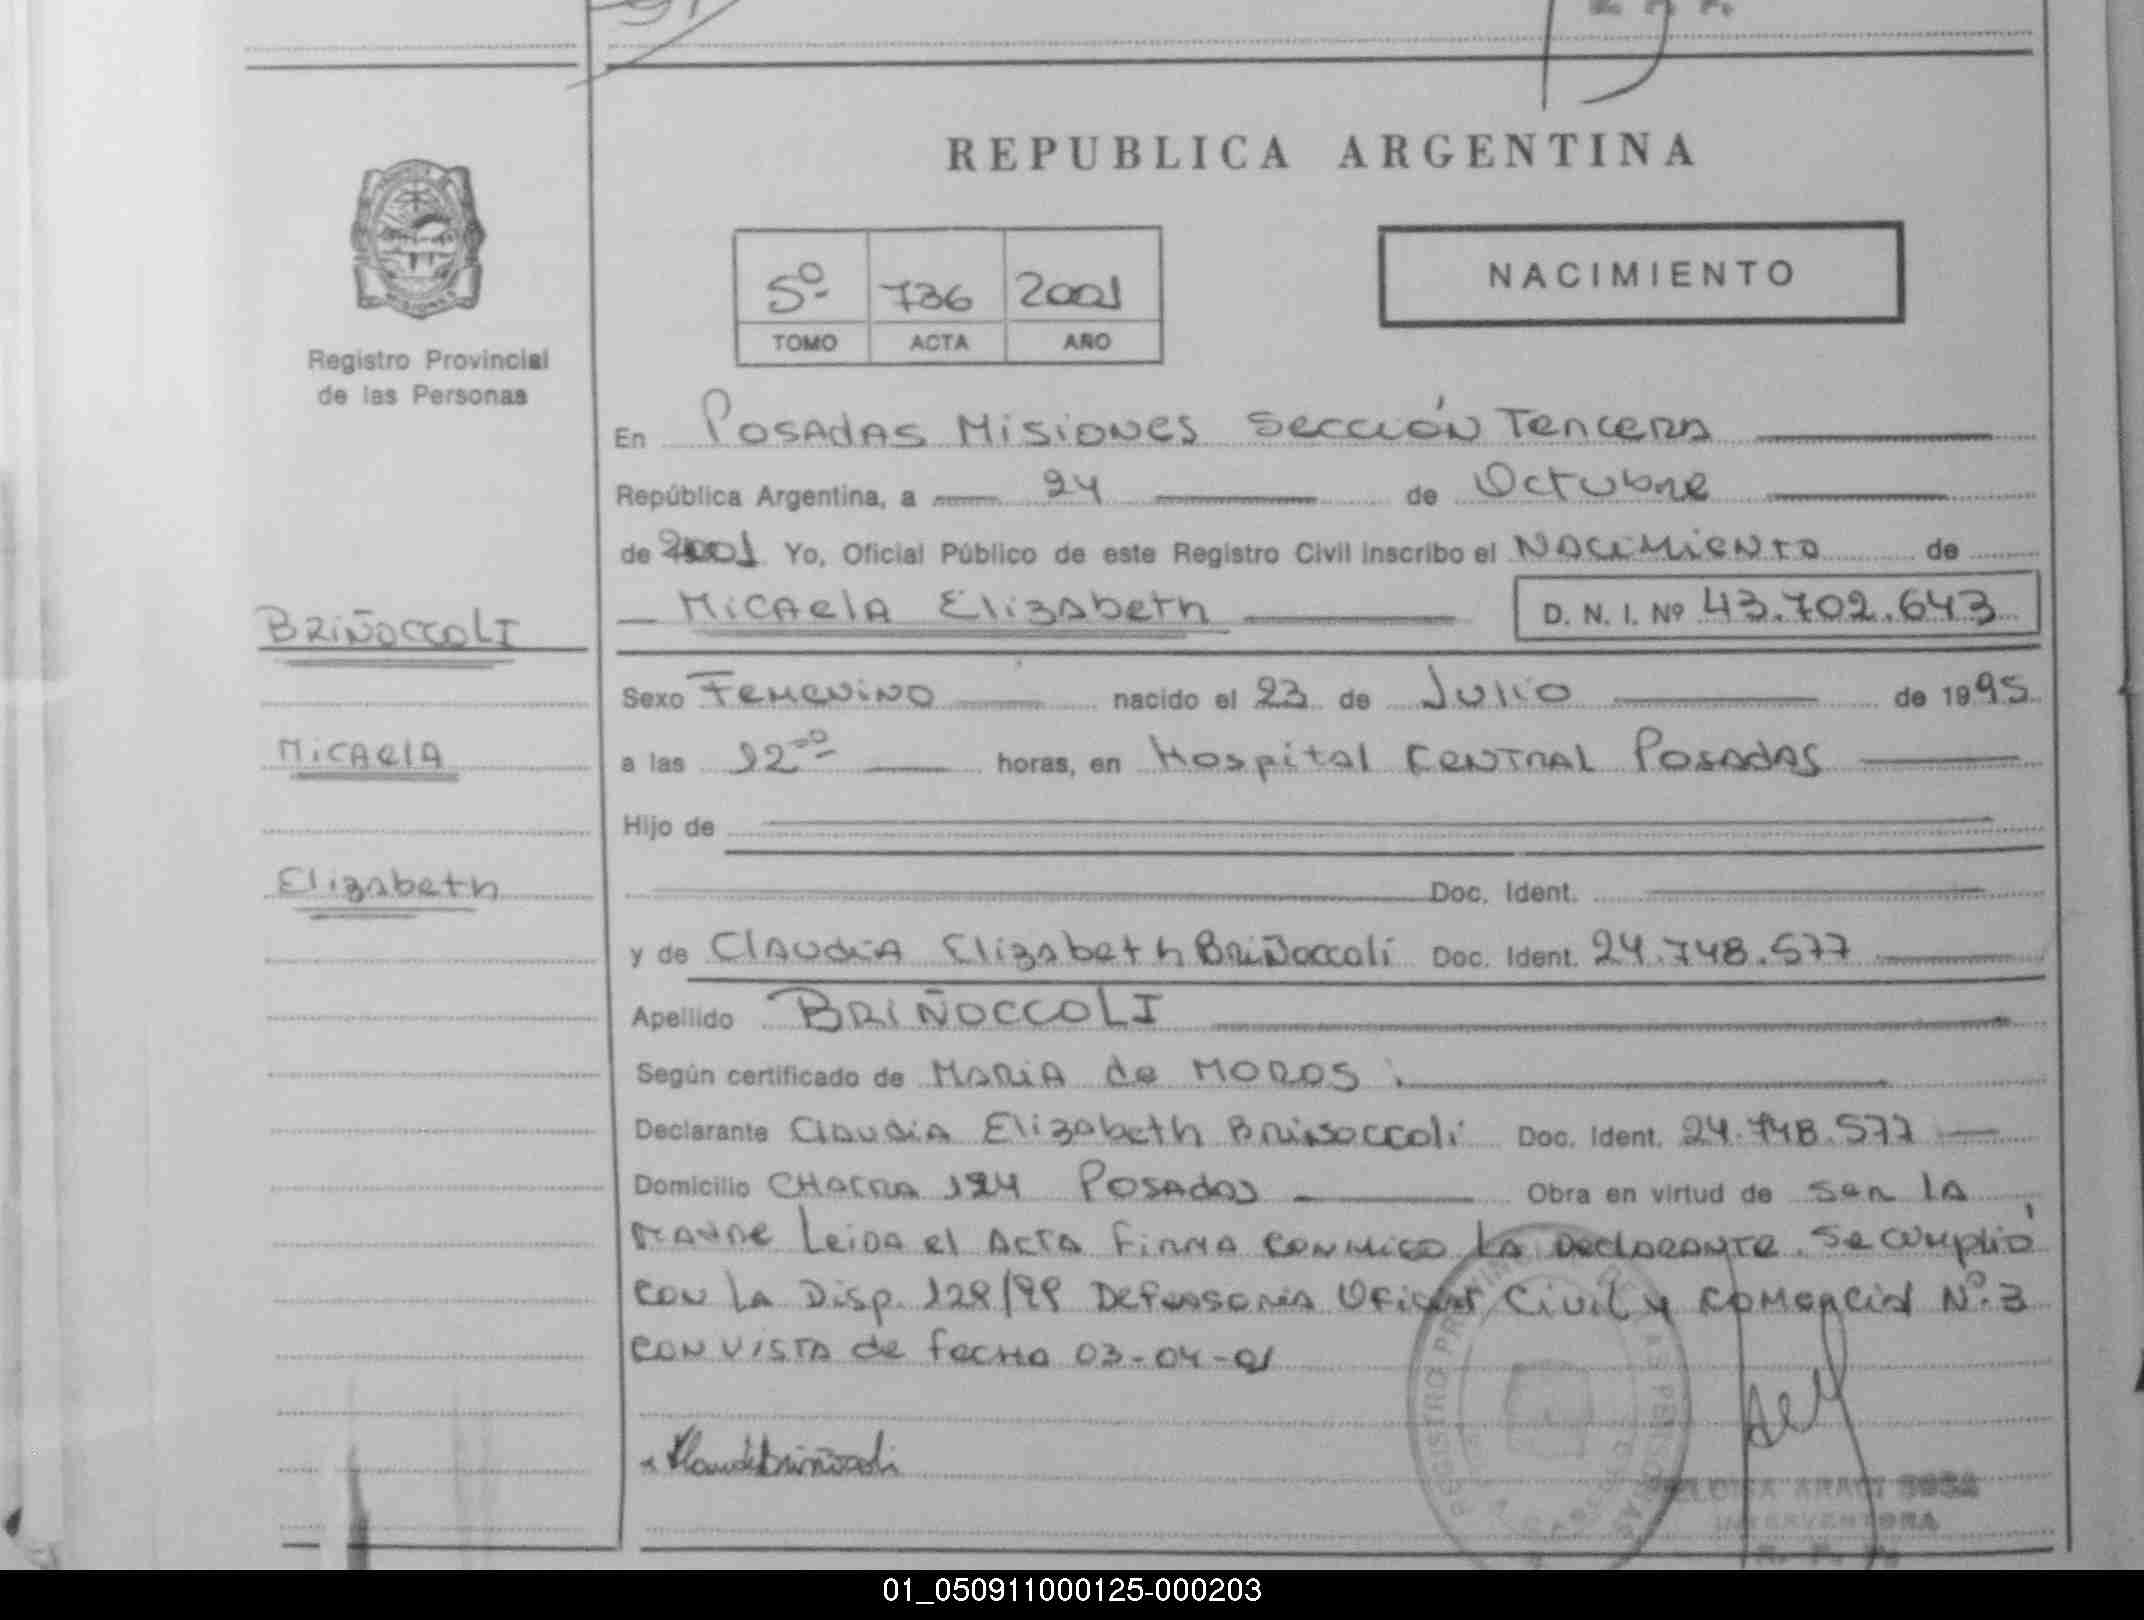 REPUBLICA ARGENTINA
NACIMIENTO
5º 736 2001
TOMO ACTA AÑO
Registro Provincial
de las Personas
En Posadas Misiones Sección Tercera
República Argentina, a 24 de Octubre
de 2001 Yo, Oficial Público de este Registro Civil inscribo el Nacimiento de
Micaela Elizabeth D. N. I. Nº 43.702.643
BRIÑOCCOLI
Micaela
Elizabeth
Sexo Femenino nacido el 23 de Julio de 1995
a las 12 horas, en Hospital Central Posadas
Hijo de
Doc. Ident.
y de Claudia Elizabeth Briñoccoli Doc. Ident. 24.748.577
Apellido BRIÑOCCOLI
Según certificado de Maria de Moros
Declarante Claudia Elizabeth Briñoccoli Doc. Ident. 24.748.577
Domicilio Chacra 124 Posadas Obra en virtud de ser la
madre Leida el Acta firma conmigo la Declarante. Se cumplió
con la Disp. Defensoria Oficial Civil y Comercial Nº 3
con vista de fecha 03-04-01
REGISTRO PROVINCIAL DE LAS PERSONAS
ARACI SOSA
INTERVENTORA
01_050911000125-000203